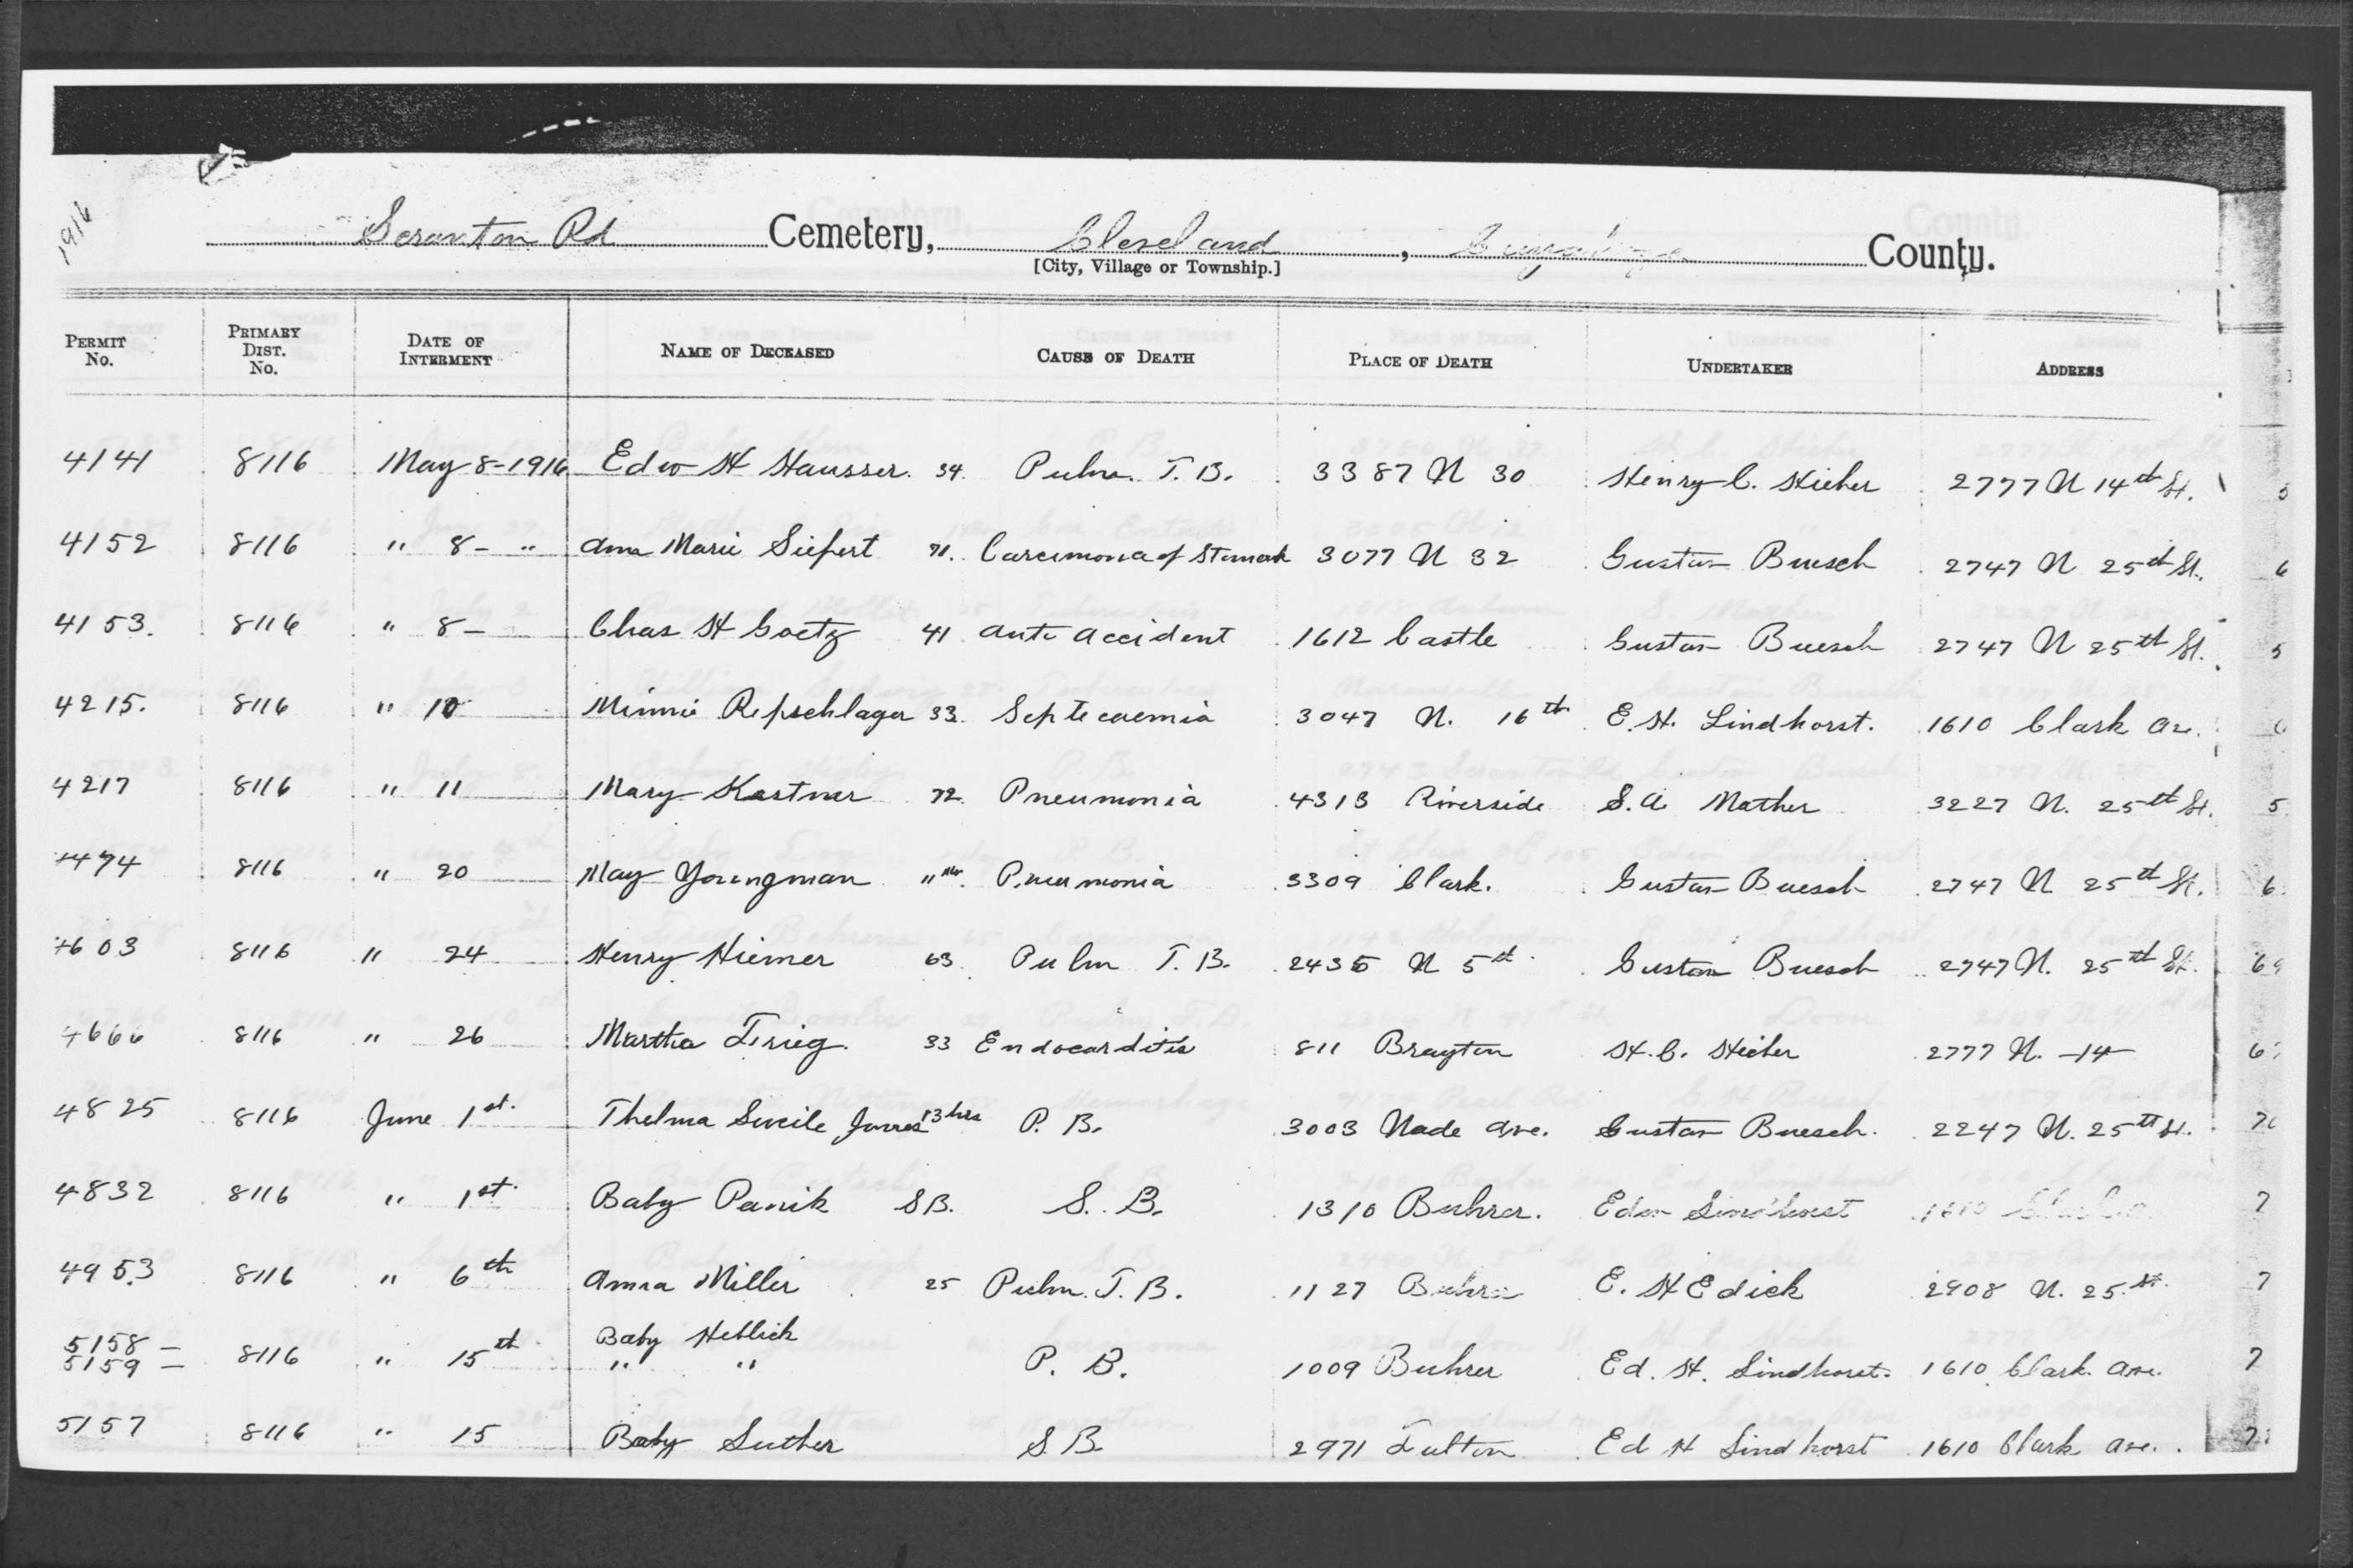 1916
Scranton Rd Cemetery, Cleveland, Cuyahoga County.
[City, Village or Township.]
PERMIT No. PRIMARY DIST. No. DATE OF INTERMENT NAME OF DECEASED CAUSE OF DEATH PLACE OF DEATH UNDERTAKER ADDRESS
4141 8116 May 8-1916 Edw H Hausser. 34 Pulm. T. B. 3387 W 30 Henry C. Hieber 2777 W 14th St. 5
4152 8116 " 8- " Anna Marie Siefert 71. Carcimona of Stomach 3077 W 32 Gustav Buesch 2747 W 25th St. 6
4153. 8116 " 8- Chas H Goetz 41 Auto accident 1612 Castle Gustav Buesch 2747 W 25th St. 5
4215. 8116 " 10 Minnie Repschlager 33. Septecaemia 3047 W. 16th E. H. Lindhorst. 1610 Clark Av. 6
4217 8116 " 11 Mary Kastner 72. Pneumonia 4313 Riverside S. A. Mather 3227 W. 25th St. 5
4474 8116 " 20 May Youngman Pneumonia 3309 Clark. Gustav Buesch 2747 W 25th St. 6
4603 8116 " 24 Henry Hiemer 63 Pulm T. B. 2435 W 5st. Gustav Buesch 2747 W. 25th St. 69
4666 8116 " 26 Martha 33 Endocarditis 811 Brayton H. C. Hieber 2777 W. -14- 6
4825 8116 June 1st. Thelma Lucile Jones 13 hrs P. B. 3003 Wade Ave. Gustav Buesch. 2247 W. 25th St. 7
4832 8116 " 1st. Baby Panik SB. S. B. 1310 Buhrer. Edw Lindhorst 1610 7
4953 8116 " 6th Anna Miller 25 Pulm. T. B. 1127 Buhrer E. H Edick 2908 W. 25. st. 7
5158 — Baby Heblich
5159 — 8116 " 15th " " P. B. 1009 Buhrer Ed. H. Lindhorst. 1610 Clark Ave. 7
5157 8116 " 15 Baby Luther S. B. 2971 Fulton Ed H Lindhorst 1610 Clark Ave. 7